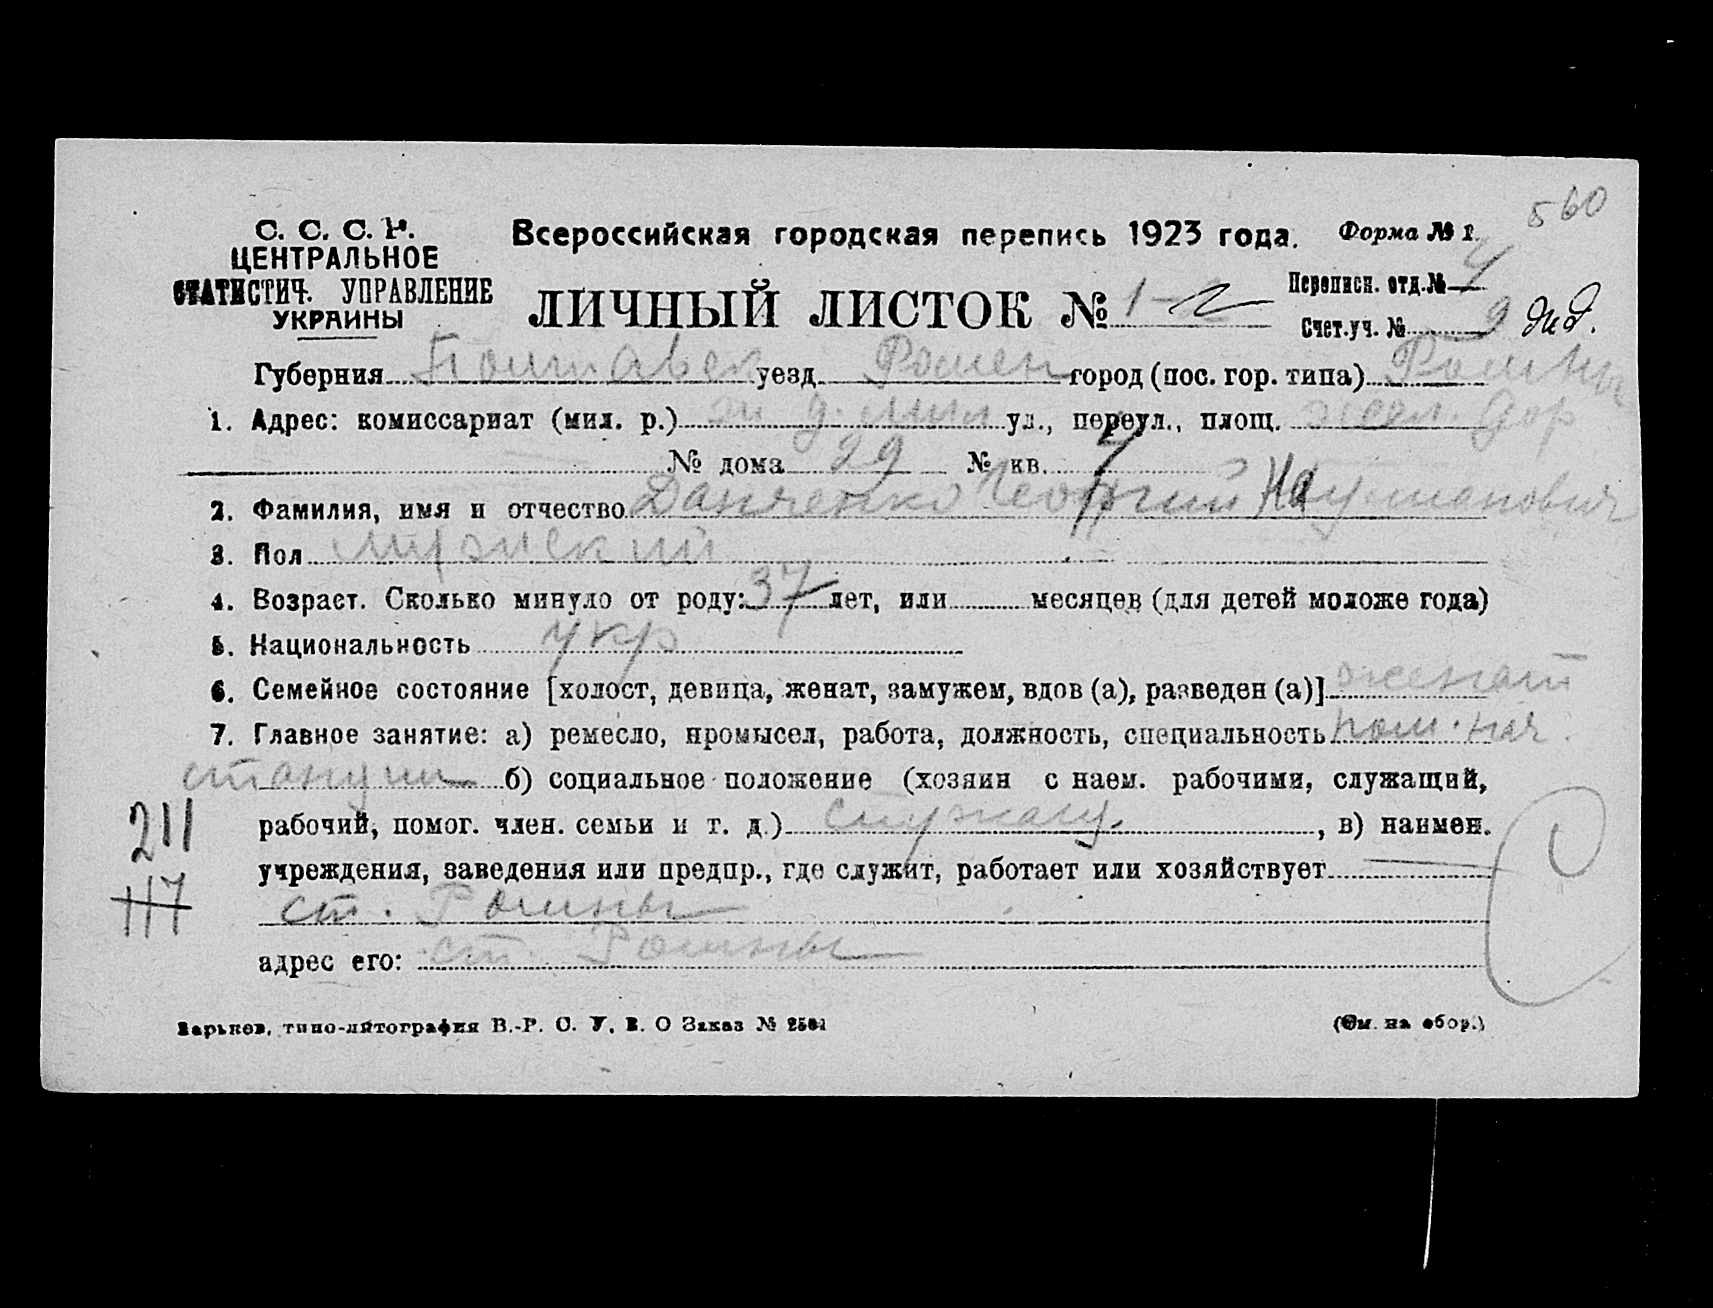 560
С. С. С. Р. Всероссийская городская перепись 1923 года. Форма № 1.
ЦЕНТРАЛЬНОЕ
СТАТИСТИЧ. УПРАВЛЕНИЕ
УКРАИНЫ
ЛИЧНЫЙ ЛИСТОК № 1-2
Переписн. отд. № 4
Счет. уч. № 9
Губерния Полтавск уезд Ромен город (пос. гор. типа) Ромны
1. Адрес: комиссариат (мил. р.) ж д. мил ул., переул., площ. жел. дор
№ дома 29 № кв. 7
2. Фамилия, имя и отчество Данченко Георгий
3. Пол мужский
4. Возраст. Сколько минуло от роду: 37 лет, или месяцев (для детей моложе года)
5. Национальность укр
6. Семейное состояние [холост, девица, женат, замужем, вдов (а), разведен (а)] женат
7. Главное занятие: а) ремесло, промысел, работа, должность, специальность пом. нач.
станции б) социальное положение (хозяин с наем. рабочими, служащий,
211
рабочий, помог. член. семьи и т. д.) служащ. , в) наимен.
учреждения, заведения или предпр., где служит, работает или хозяйствует
117
ст. Ромны
адрес его: ст. Ромны
Харьков, типо-литография В.-Р. С. У. В. О Заказ №
(См. на обор.)